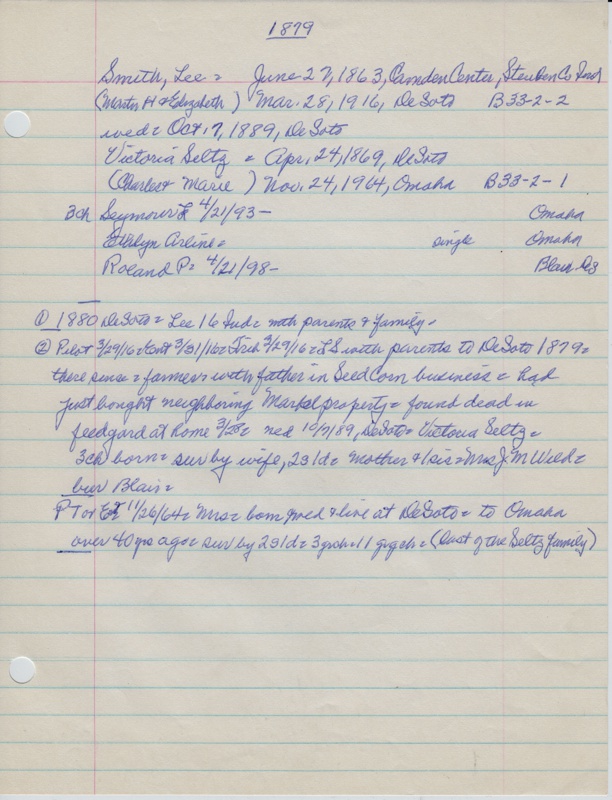 1879
Smith, Lee = June 27, 1863, Camden Center, Steuben Co Ind
(Martin H & Elizabeth) Mar. 28, 1916, DeSoto B33-2-2
wed = Oct. 7, 1889, DeSoto
Victoria Seltz = Apr. 24, 1869, DeSoto
(Charles & Marie) Nov. 24, 1964, Omaha B33-2-1
3ch Seymour L 4/21/93- Omaha
Ethlyn Arline = single Omaha
Roland P = 4/21/98- Blair
① 1880 DeSoto = Lee 16 Ind = with parents & family =
② Pilot 3/29/16 = Ent 3/31/16 = Trib 3/29/16 = LS with parents to DeSoto 1879 =
there since = farmer with father in Seed Corn business = had
just bought neighboring Markel property = found dead in
feedyard at home 3/28 = wed 10/7/89, DeSoto = Victoria Seltz =
3ch born = sur by wife, 2s1d = mother & 1sis = Mrs J M Wild =
bur Blair =
PT or Ent 11/26/64 = Mrs = born, wed & live at DeSoto = to Omaha
over 40 yrs ago = sur by 2s1d = 3grch = 11 grgrch = (Last of the Seltz family)